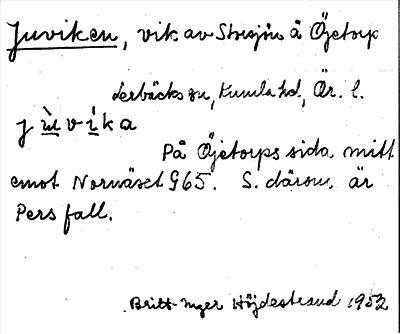 Juviken, vik av Storsjön å Öjetorp
Lerbäcks sn, Kumla hd, Ör. l.
j ù v i̇ k a
På Öjetorps sida, mitt
emot Nornäset 965. S. därom, är
Pers fall.
Britt-Inger Höjdestrand 1952